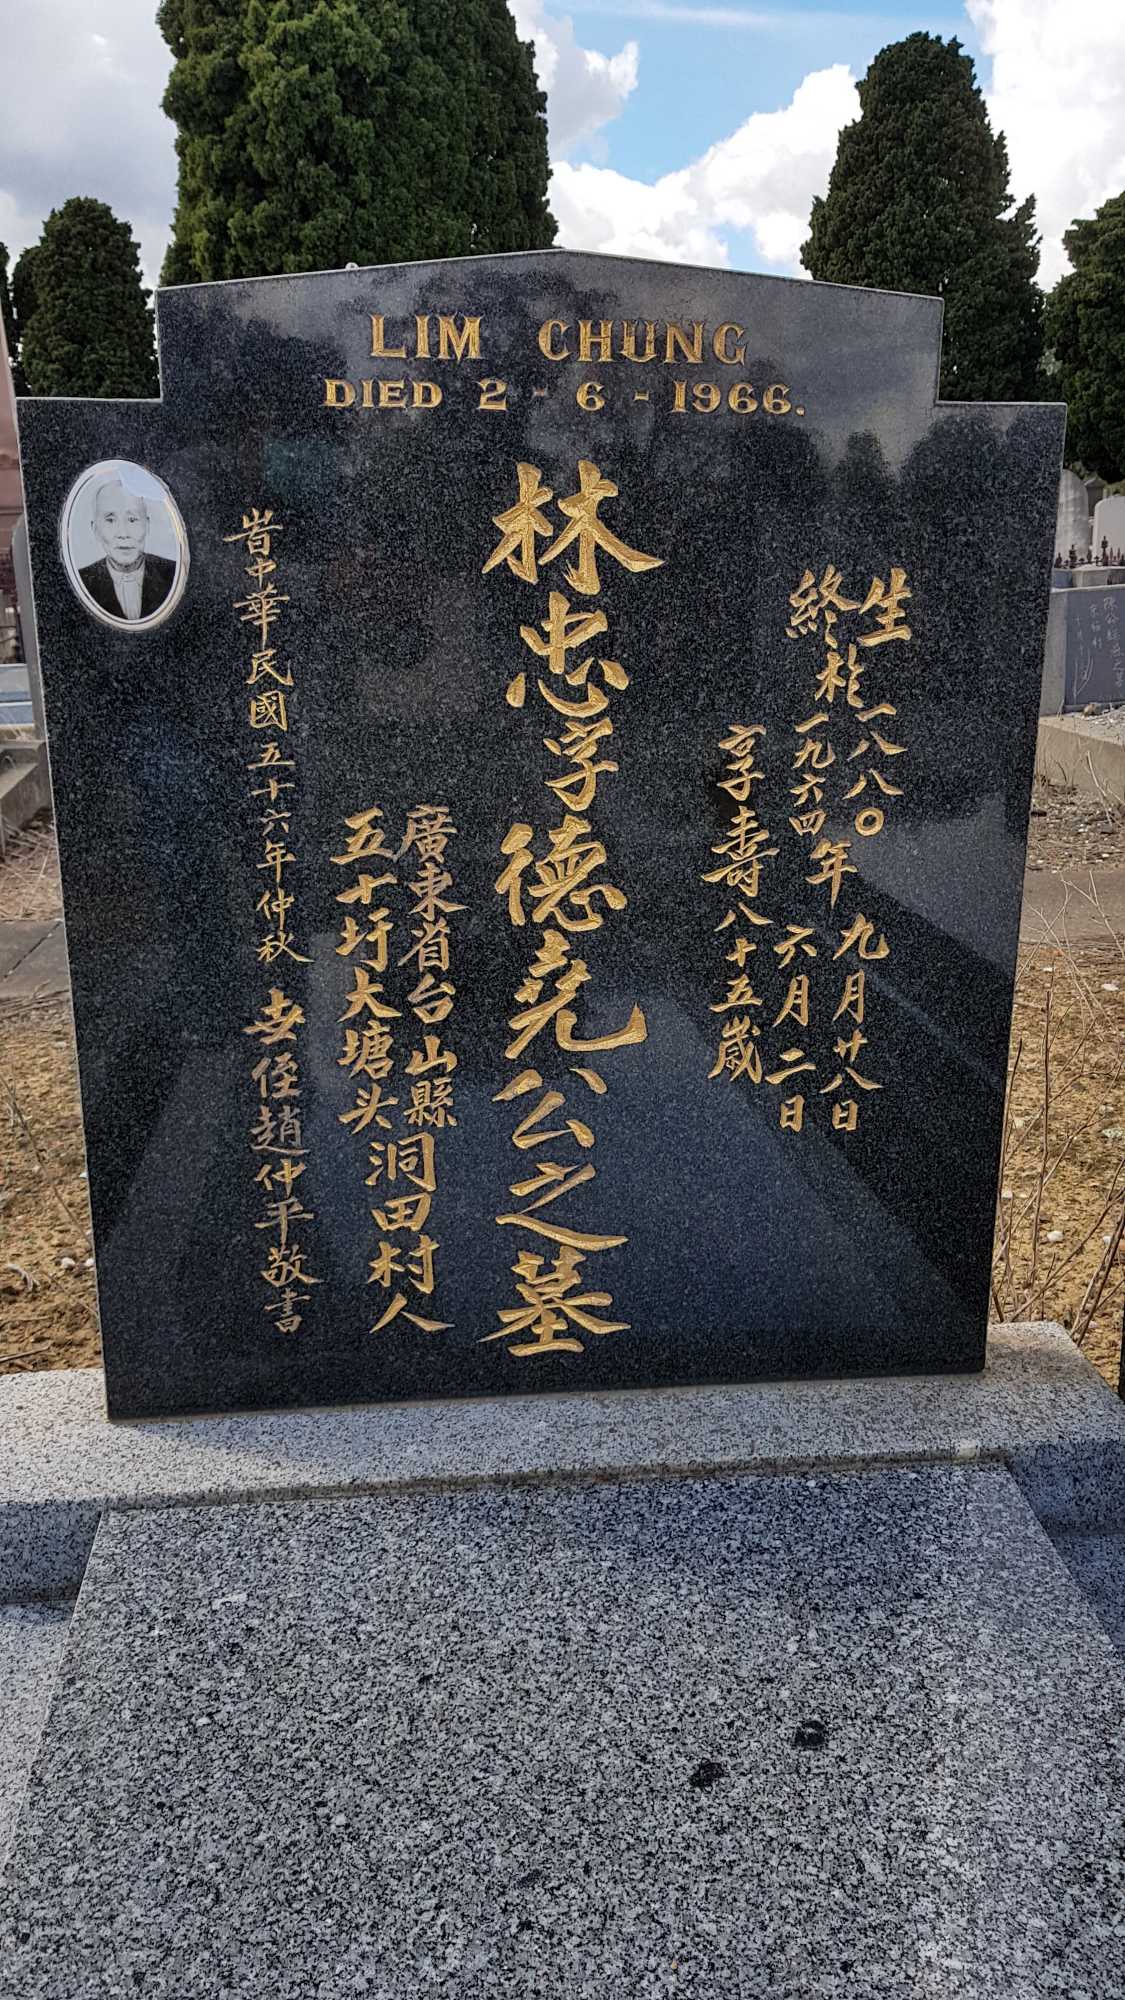 LIM CHUNG
DIED 2-6-1966.
生於一八八〇年九月廿八日
終於一九六四年六月二日
享壽八十五歲
林忠字德堯公之墓
廣東省台山縣
五十圩大塘头
洞田村人
旹中華民國五十六年仲秋 世侄趙仲平敬書